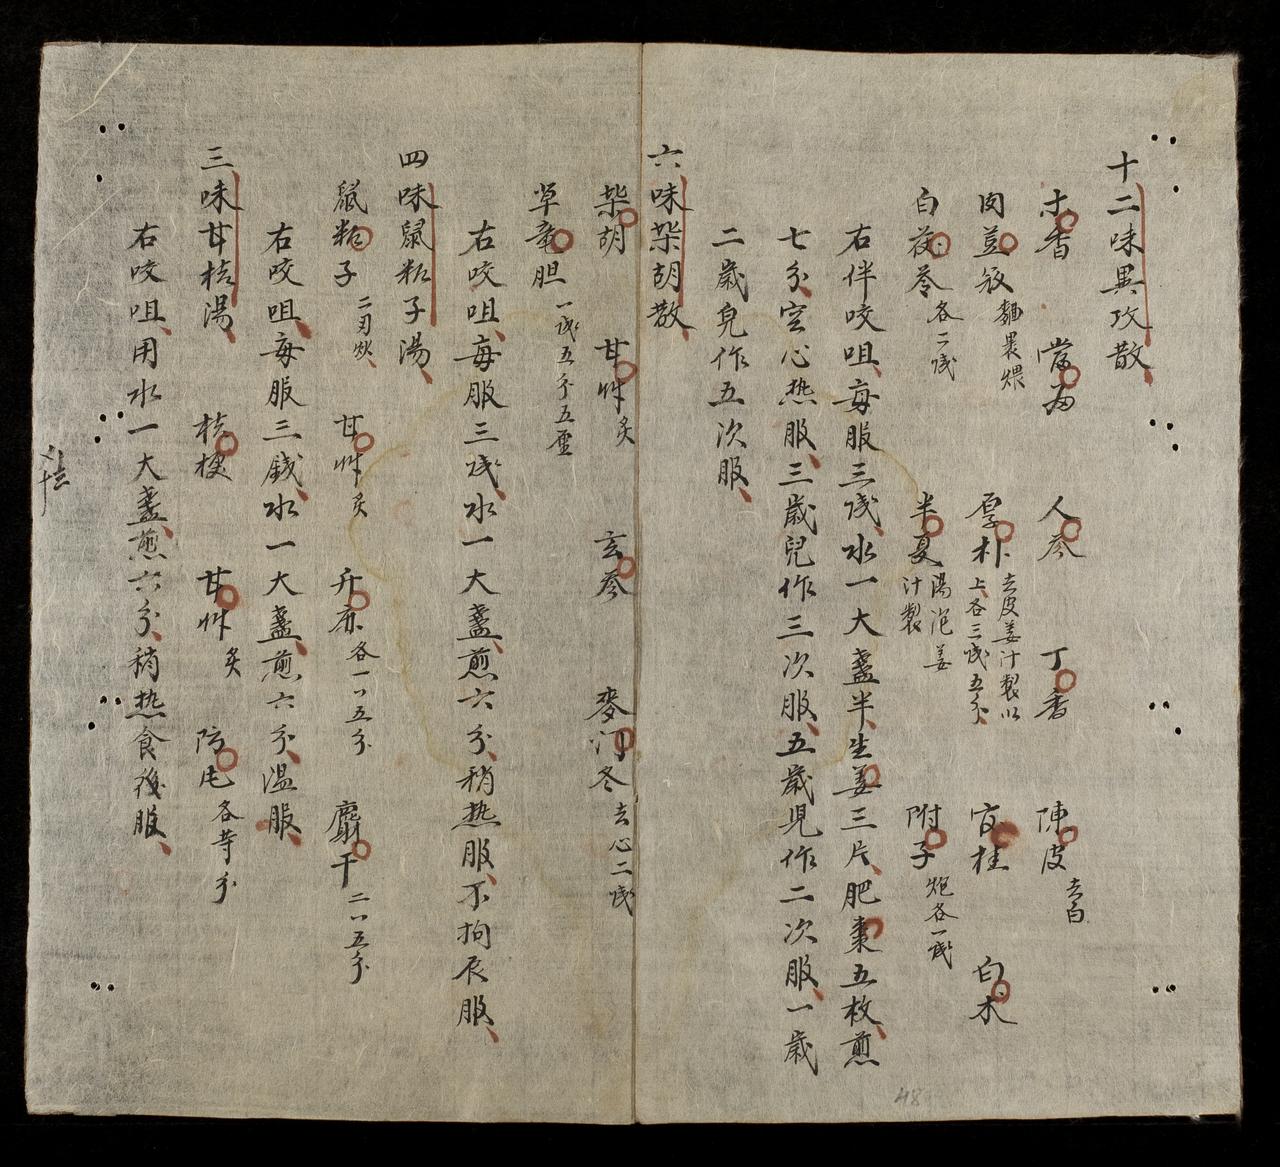 十二味異攻散
木香 當歸 人参 丁香 陳皮去白
肉荳蔻麵裹煨 厚朴去皮姜汁製以上各三戋五分 官桂 白朮
白茯苓各二戋 半夏湯泡姜汁製 附子炮各一戋
右件咬咀毎服三戋水一大盞半生姜三片肥棗五枚煎
七分空心热服三歳兒作三次服五歳児作二次服一歳
二歳兒作五次服
六味柴胡散
柴胡 甘艸炙 玄参 麥门冬去心二戋
草竜胆一戋五分五厘
右咬咀毎服三戋水一大盞煎六分稍热服不拘辰服
四味鼠粘子湯
鼠粘子二刃炒 甘艸炙 升麻各一〻五分 麝干二〻五分
右咬咀毎服三錢水一大盞煎六分温服
三味甘桔湯
桔梗 甘艸炙 防毛各等分
右咬咀用水一大盞煎六分稍热食後服
48